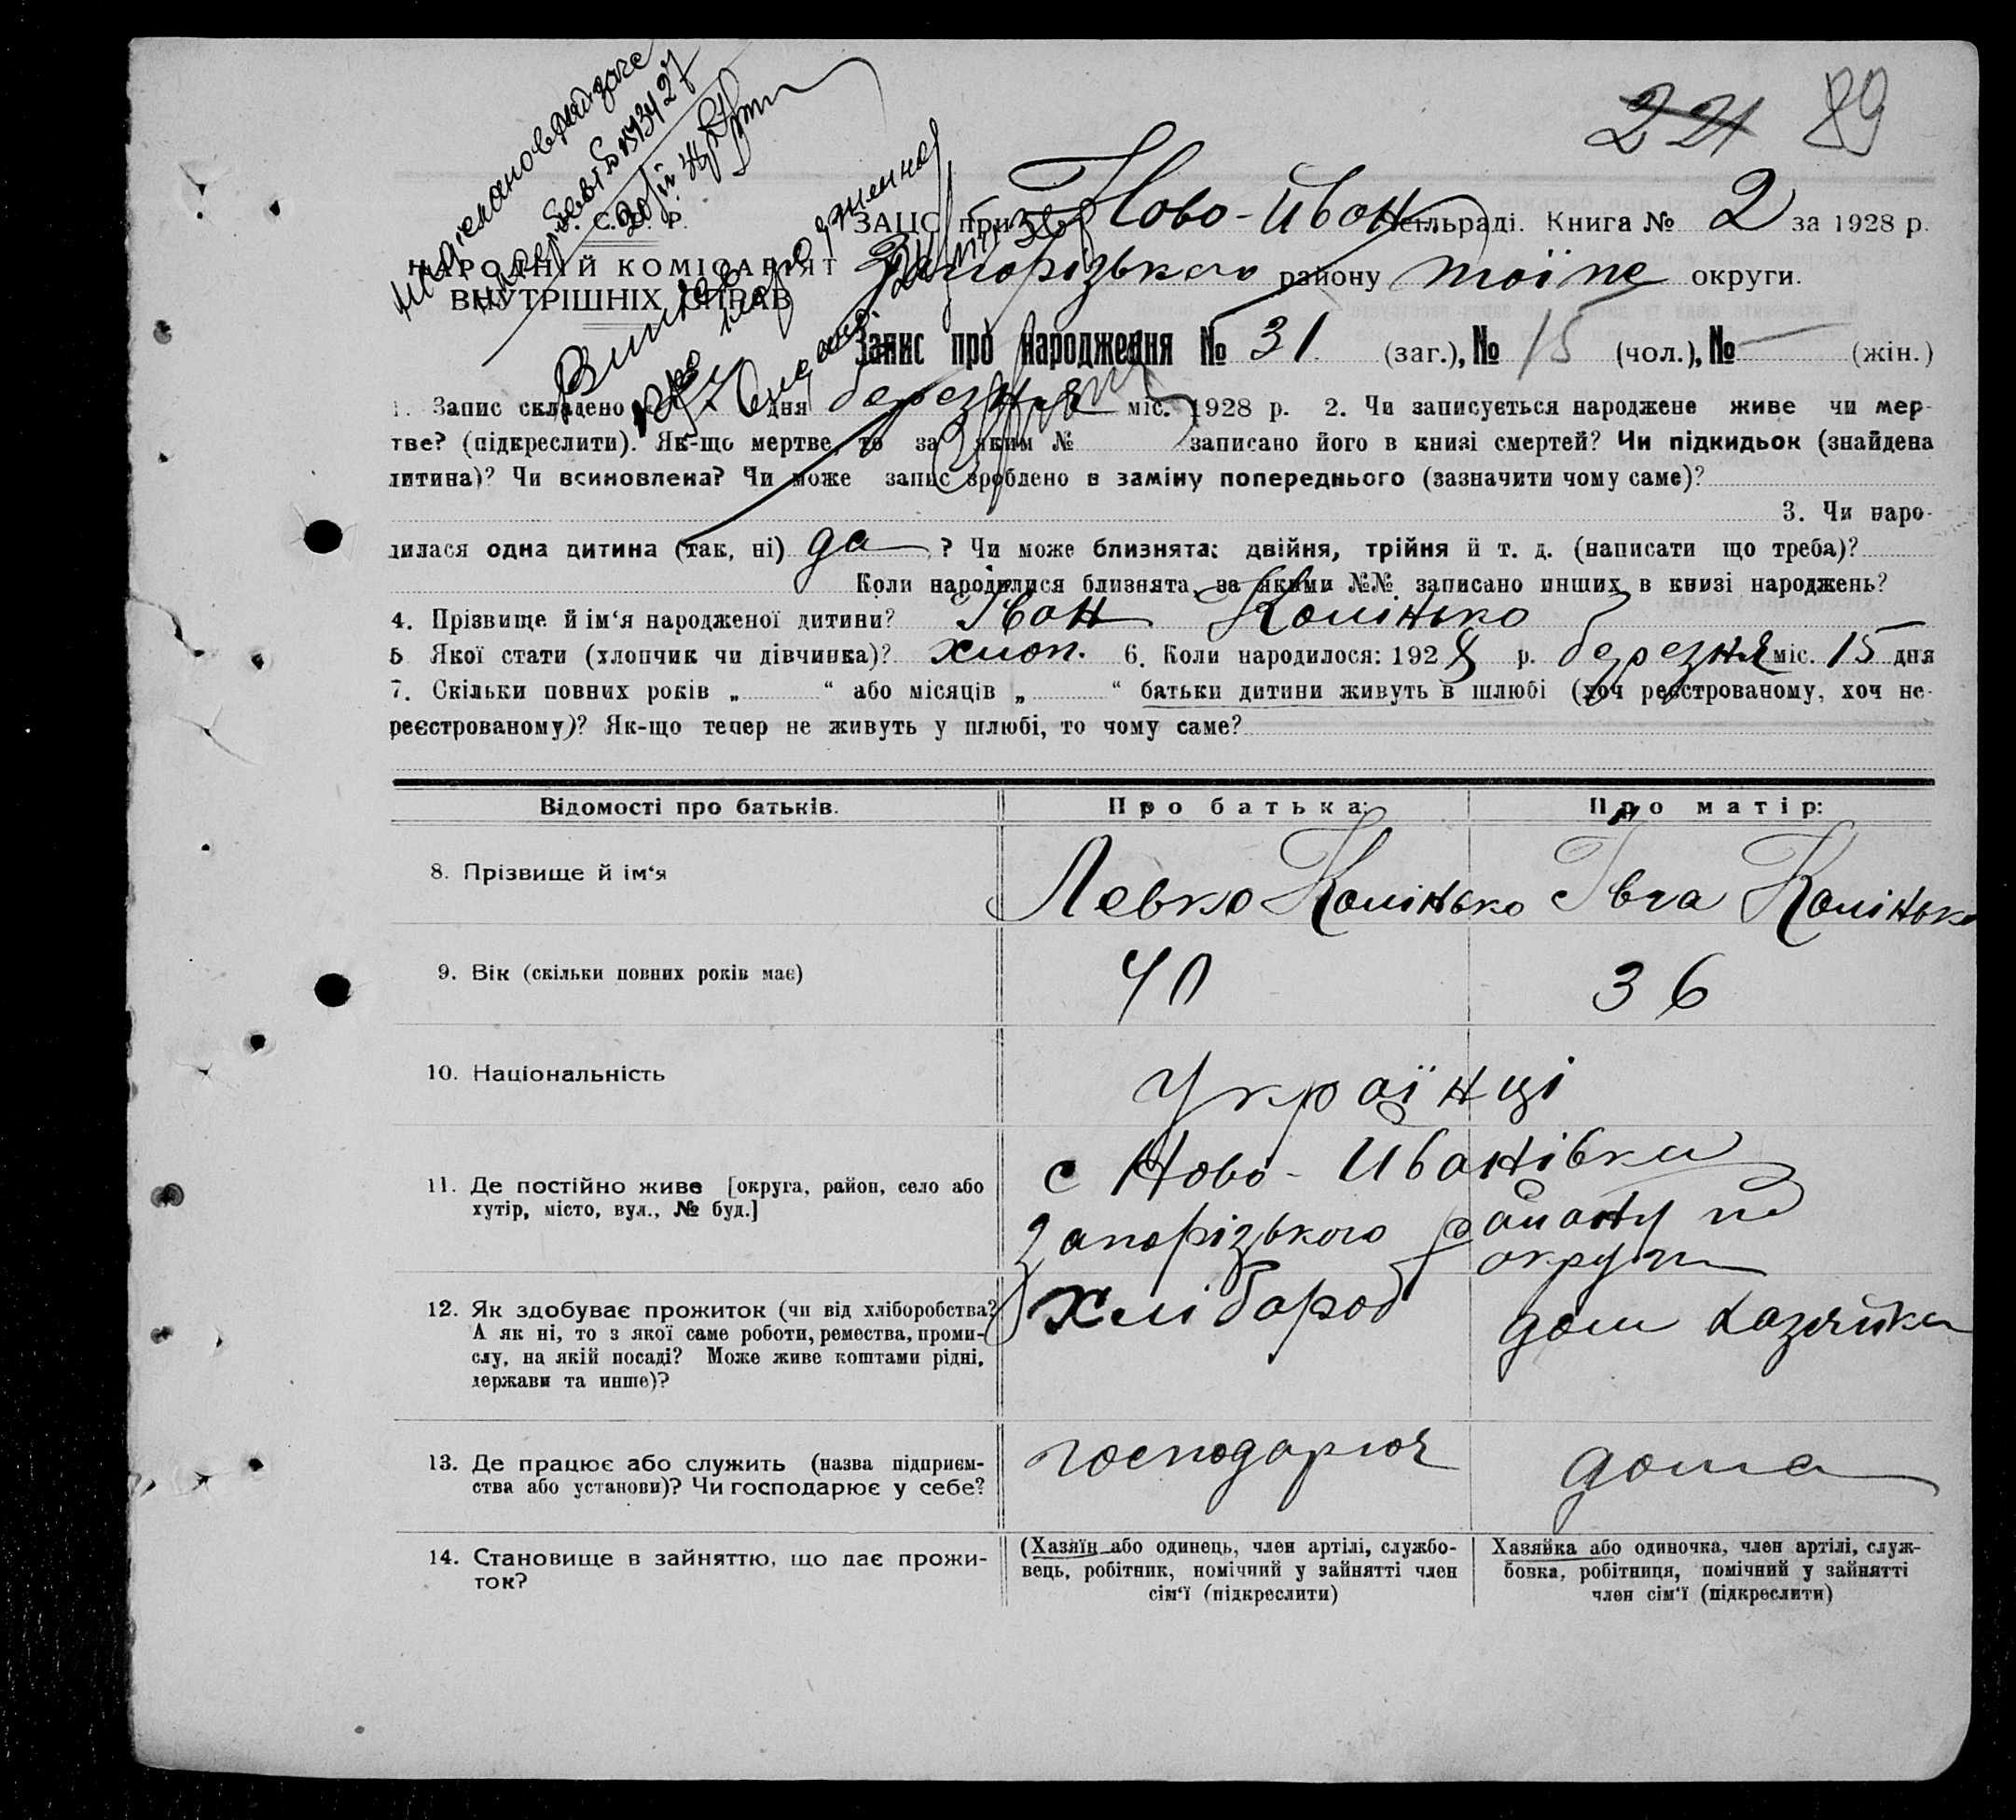 221 89
У. С. Р. Р.
НАРОДНІЙ КОМІСАРІЯТ
ВНУТРІШНІХ СПРАВ
ЗАЦС при Ново-Иван сільраді. Книга № 2 за 1928 р.
Запорізького району тоїже округи.
Запис про народження № 31 (заг.), № 15 (чол.), № — (жін.)
1. Запис складено дня березня міс. 1928 р. 2. Чи записується народжене живе чи мер-
тве? (підкреслити). Як-що мертве, то за яким № записано його в книзі смертей? Чи підкидьок (знайдена
дитина)? Чи всиновлена? Чи може запис зроблено в заміну попереднього (зазначити чому саме)?
3. Чи наро-
дилася одна дитина (так, ні) да ? Чи може близнята: двійня, трійня й т. д. (написати що треба)?
Коли народилися близнята, за якими №№ записано инших в книзі народжень?
4. Прізвище й ім'я народженої дитини? Іван Колінько
5 Якої стати (хлопчик чи дівчинка)? хлоп. 6. Коли народилося: 1928 р. березня міс. 15 дня
7. Скільки повних років „ “ або місяців „ “ батьки дитини живуть в шлюбі (хоч реєстрованому, хоч не-
реєстрованому)? Як-що тепер не живуть у шлюбі, то чому саме?
Відомості про батьків. Про батька: Про матір:
8. Прізвище й ім'я Левко Колінько Івга Колінько
9. Вік (скільки повних років має) 40 36
10. Національність Українці
11. Де постійно живе [округа, район, село або
хутір, місто, вул., № буд.]
с Ново-Иванівка
Запорізького району
округи
12. Як здобуває прожиток (чи від хліборобства?
А як ні, то з якої саме роботи, ремества, проми-
слу, на якій посаді? Може живе коштами рідні,
держави та инше)?
Хлібороб дом хазяйка
13. Де працює або служить (назва підприєм-
ства або установи)? Чи господарює у себе?
господарює дома
14. Становище в зайняттю, що дає прожи-
ток?
(Хазяїн або одинець, член артілі, службо-
вець, робітник, помічний у зайнятті член
сім'ї (підкреслити)
Хазяйка або одиночка, член артілі, служ-
бовка, робітниця, помічний у зайнятті
член сім'ї (підкреслити)